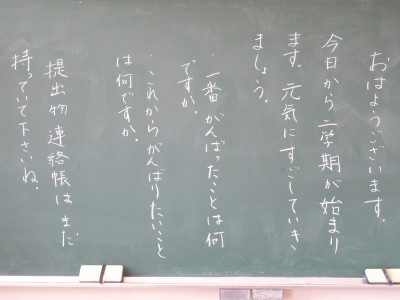 おはようございます。
今日から二学期が始まり
ます。元気にすごしていき
ましょう。
・一番がんばったことは何
ですか。
・これからがんばりたいこと
は何ですか。
提出物連絡帳はまだ
持っていて下さいね。